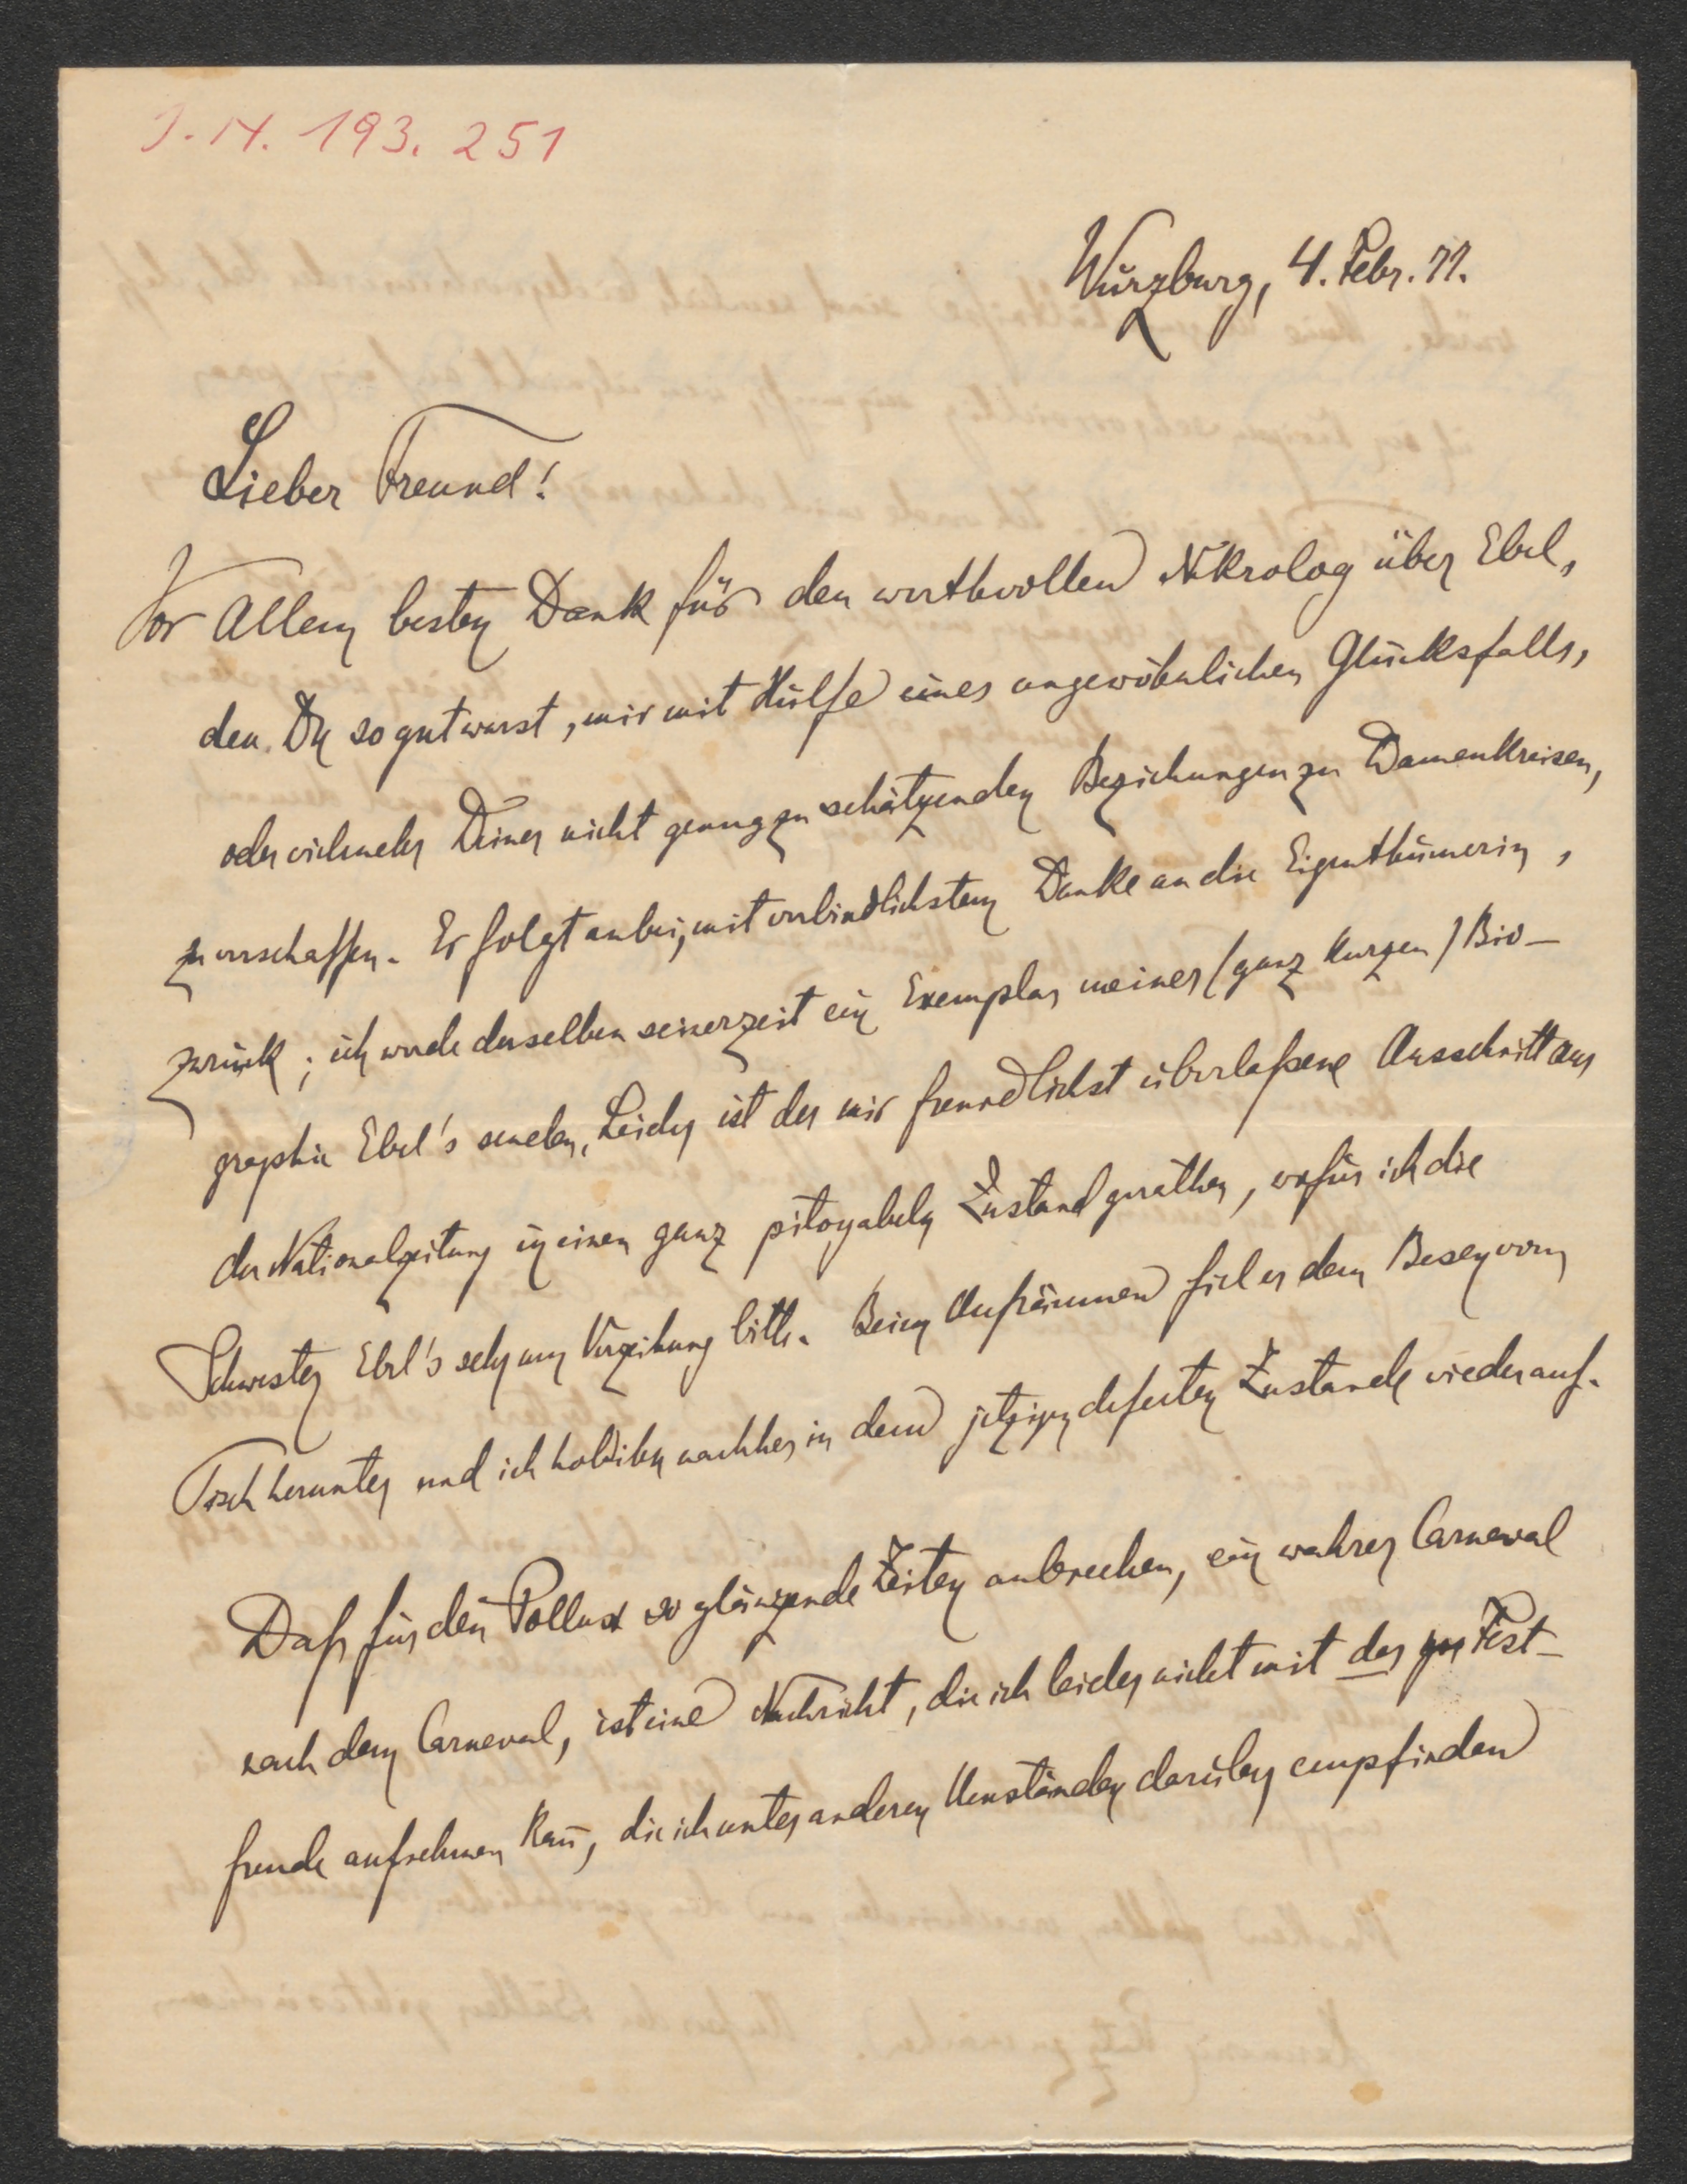 J. N. 193. 251
Würzburg, 4. Febr. 77.
Lieber Freund!
Vor Allem besten Dank für den werthvollen Nekrolog über Ebel,
den Du so gut warst, mir mit Hülfe eines ungewöhnlichen Glücksfalls,
oder vielmehr Deiner nicht genug zu schätzenden Beziehungen zu Damenkreisen,
zu verschaffen. Er folgt anbei, mit verbindlichstem Danke an die Eigenthümerin,
zurück; ich werde derselben seinerzeit ein Exemplar meiner (ganz kurzen) Bio-
graphie Ebel's senden. Leider ist der mir freundlichst überlaßene Ausschnitt aus
der Nationalzeitung in einen ganz pitoyabeln Zustand gerathen, wofür ich die
Schwester Ebel's sehr um Verzeihung bitte. Beim Aufräumen fiel er dem Besen vom
Tisch herunter und ich hob ihn nachher in dem jetzigen defecten Zustande wieder auf.
Daß für den Pollux so glänzende Zeiten anbrechen, ein wahrer Carneval
nach dem Carneval, ist eine Nachricht, die ich leider nicht mit der Fest-
freude aufnehmen kan̄, die ich unter anderen Umständen darüber empfinden